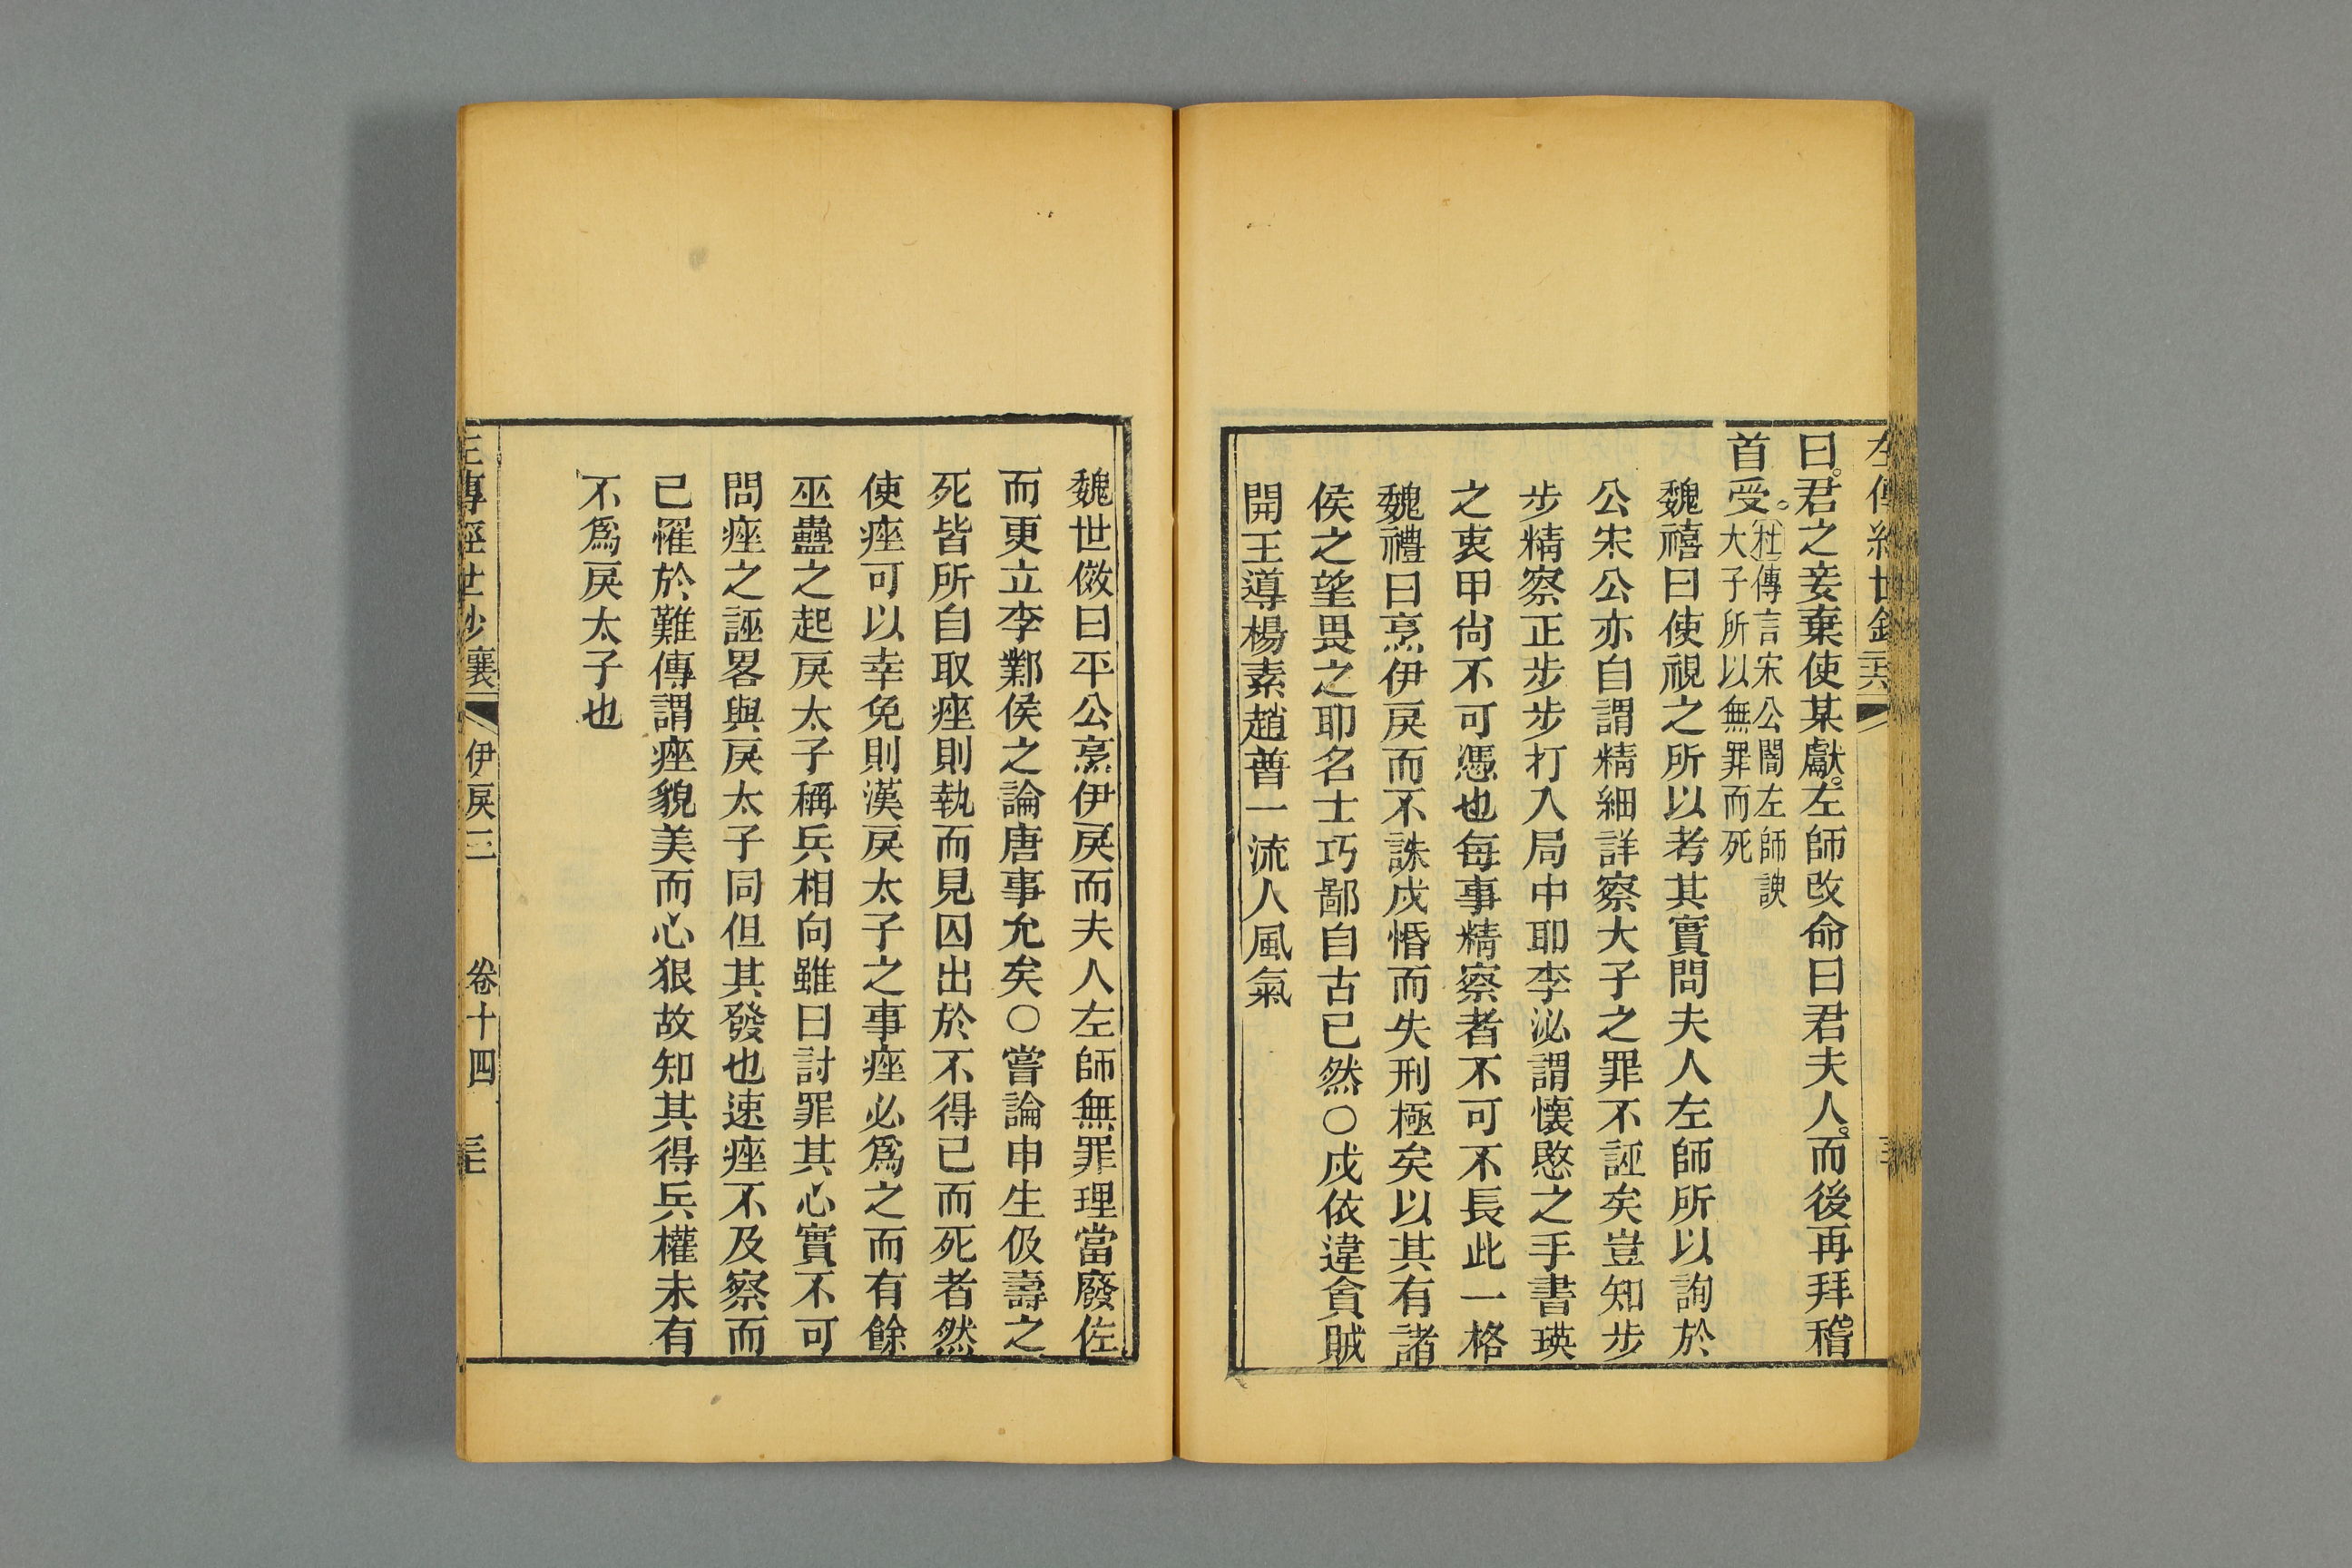 曰。君之妾棄使某獻。左師改命曰君夫人。而後再拜稽
首受。
杜傳言宋公闇左師諛
大子所以無罪而死
魏禧曰使視之所以考其實問夫人左師所以詢於
公宋公亦自謂精細詳察大子之罪不誣矣豈知步
步精察正步步打入局中耶李泌謂懷愍之手書瑛
之衷甲尙不可憑也每事精察者不可不長此一格
魏禮曰烹伊戾而不誅戍惛而失刑極矣以其有諸
侯之望畏之耶名士巧鄙自古已然〇戍依違貪賊
開王導楊素趙普一流人風氣
魏世傚曰平公烹伊戾而夫人左師無罪理當廢佐
而更立李鄴侯之論唐事允矣〇嘗論申生伋壽之
死皆所自取痤則執而見囚出於不得已而死者然
使痤可以幸免則漢戾太子之事痤必爲之而有餘
巫蠱之起戾太子稱兵相向雖曰討罪其心實不可
問痤之誣畧與戾太子同但其發也速痤不及察而
己罹於難傳謂痤貌美而心狠故知其得兵權未有
不爲戾太子也
左傳經世鈔 襄 伊戾三 卷十四